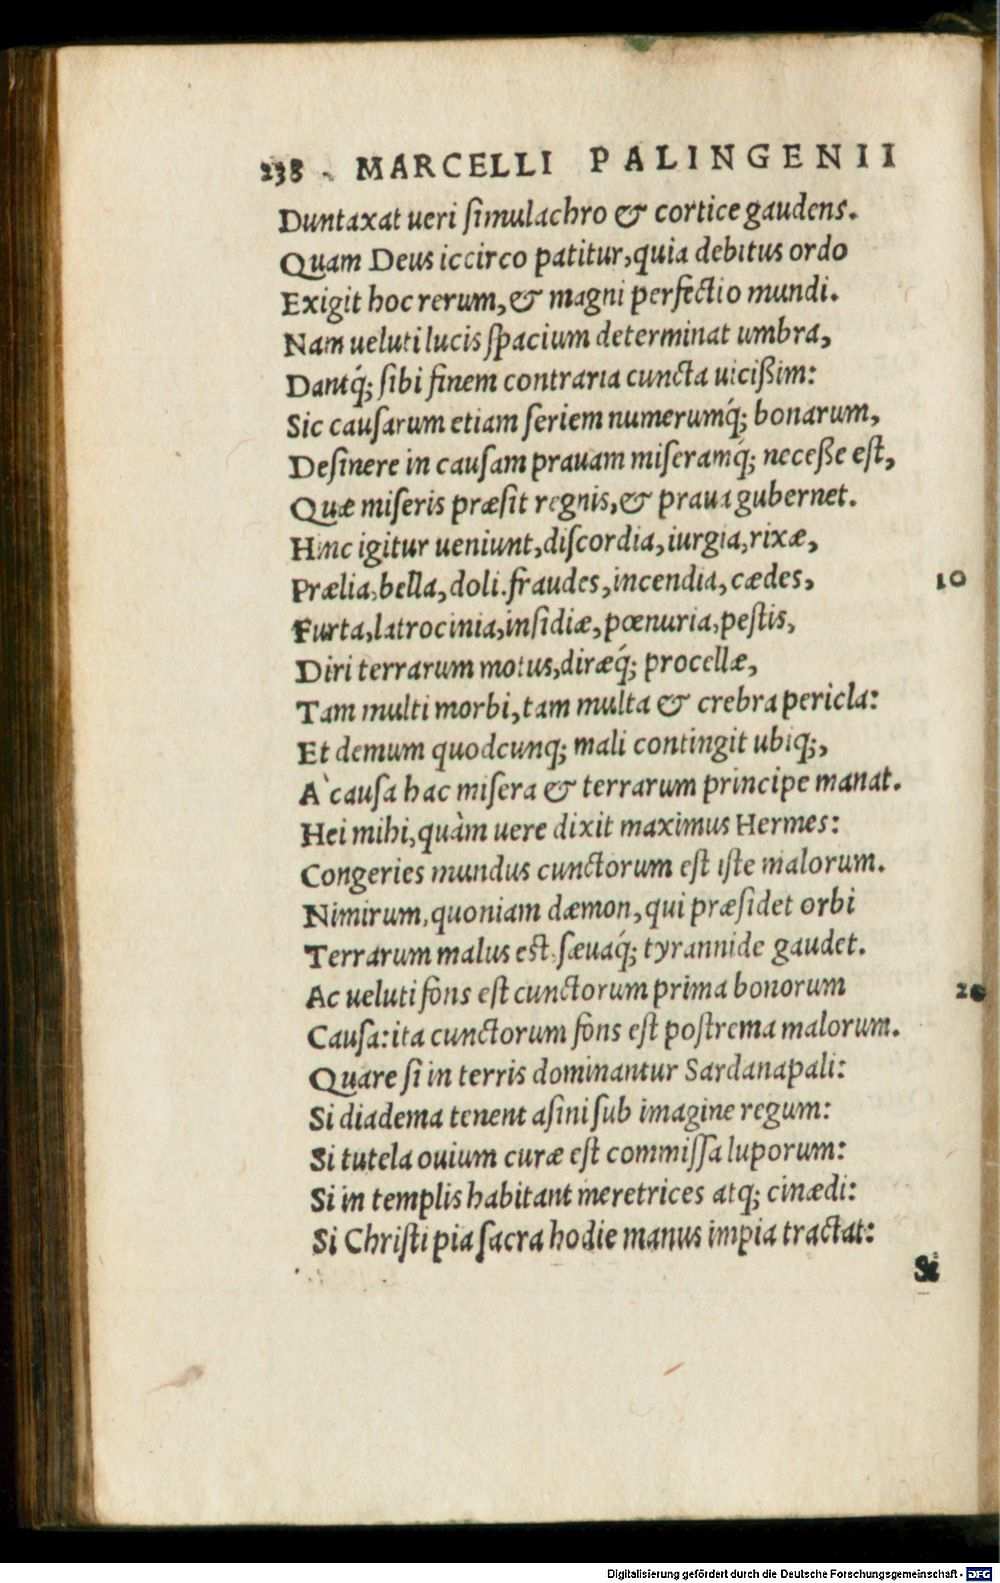 238 . MARCELLI PALINGENII
Duntaxat ueri ſimulachro & cortice gaudens.
Quam Deus iccirco patitur, quia debitus ordo
Exigit hoc rerum, & magni perfectio mundi.
Nam ueluti lucis ſpacium determinat umbra,
Dantq́; ſibi finem contraria cuncta uicißim:
Sic cauſarum etiam ſeriem numerumq́; bonarum,
Deſinere in cauſam prauam miſeramq́; neceße eſt,
Quæ miſeris præſit regnis, & praua gubernet.
Hinc igitur ueniunt, diſcordia, iurgia, rixæ,
Prælia, bella, doli. fraudes, incendia, cædes, 10
Furta, latrocinia, inſidiæ, pœnuria, peſtis,
Diri terrarum motus, diræq́; procellæ,
Tam multi morbi, tam multa & crebra pericla:
Et demum quodcunq; mali contingit ubiq;,
A` cauſa hac miſera & terrarum principe manat.
Hei mihi, quàm uere dixit maximus Hermes:
Congeries mundus cunctorum eſt iſte malorum.
Nimirum, quoniam dæmon, qui præſidet orbi
Terrarum malus eſt. ſæuaq́; tyrannide gaudet.
Ac ueluti fons eſt cunctorum prima bonorum 20
Cauſa: ita cunctorum fons eſt poſtrema malorum.
Quare ſi in terris dominantur Sardanapali:
Si diadema tenent aſini ſub imagine regum:
Si tutela ouium curæ eſt commiſſa luporum:
Si in templis habitant meretrices atq; cinædi:
Si Chriſti pia ſacra hodie manus impia tractat:
Si
Digitalisierung gefördert durch die Deutsche Forschungsgemeinschaft - DFG